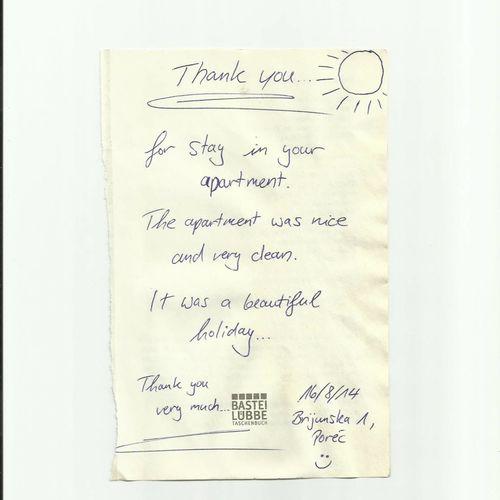 Thank you...
for stay in your
apartment.
The apartment was nice
and very clean.
It was a beautiful
holiday...
Thank you
very much...
BASTEI
LÜBBE
TASCHENBUCH
16/8/14
Brijunska 1,
Poreč